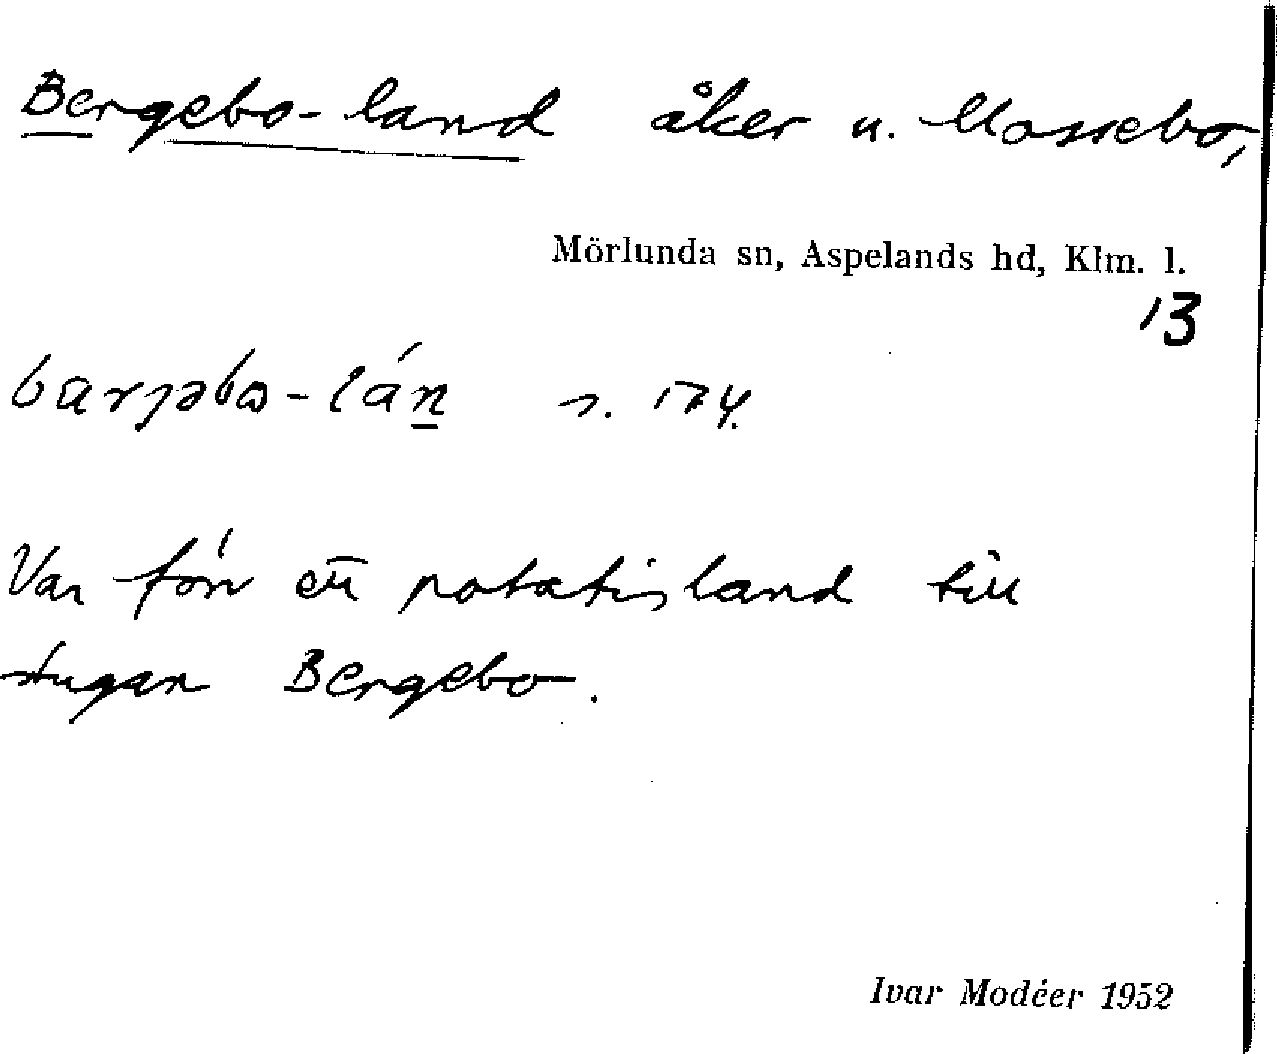 Bergebo-land åker u. Mossebo,
Mörlunda sn, Aspelands hd, Klm. l.
13
bærjəbω-lán s. 174.
Var förr ett potatisland till
stugan Bergebo.
Ivar Modéer 1952